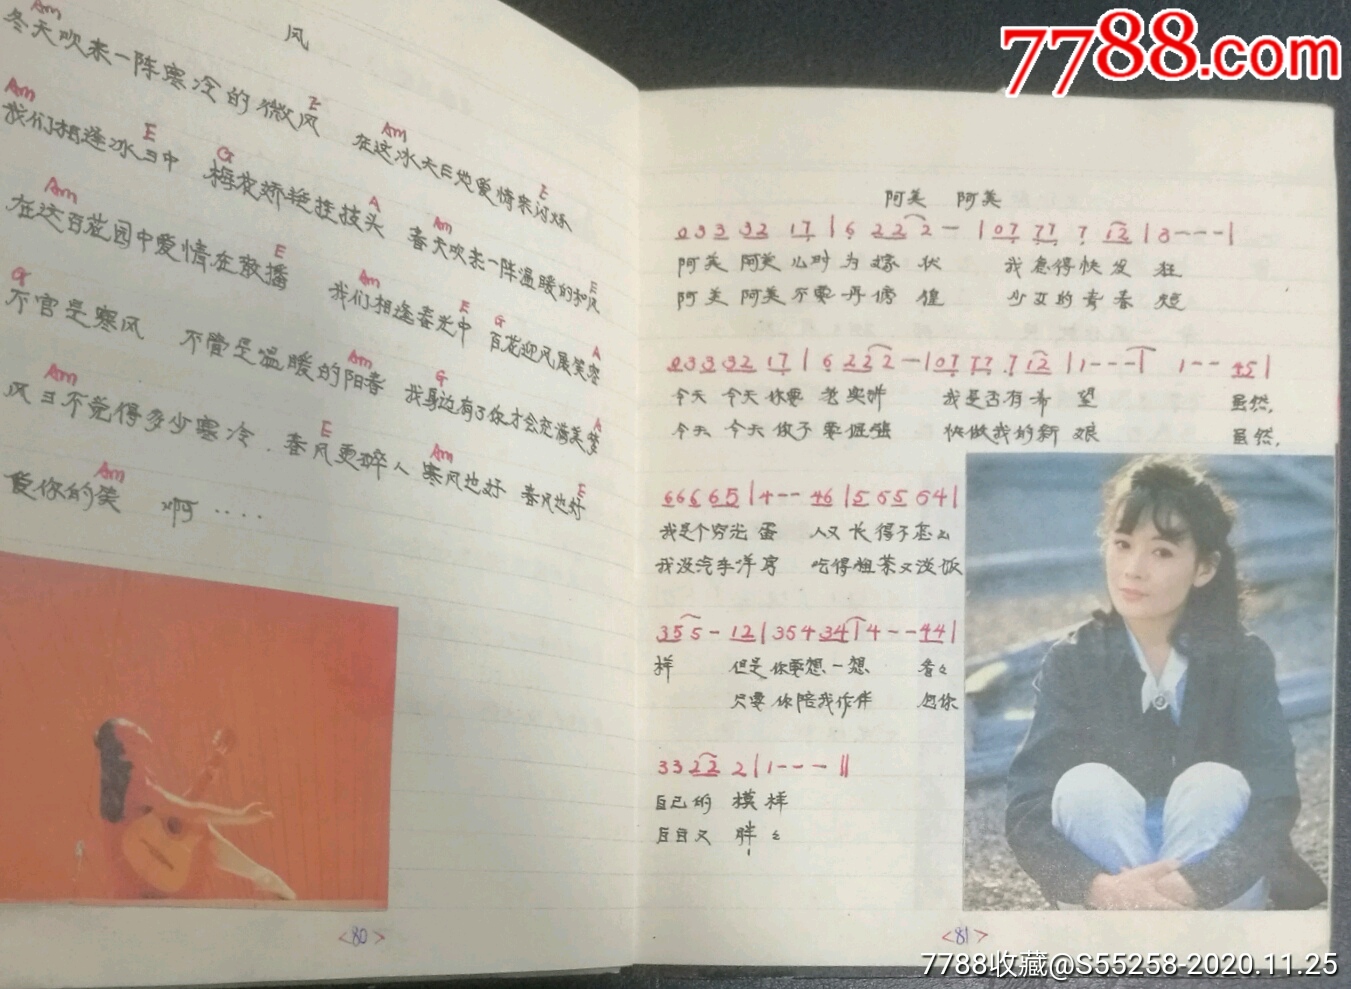 风
Am
冬天吹来一阵寒冷的微风 在这冰天日地爱情来闪烁
Am E Am E
我们相逢冰日中 梅花娇艳挂技头 春天吹来一阵温暖的和风
Am E G A Am E
在这百花园中爱情在散播 我们相逢春光中 百花迎风展笑容
Am E Am E G A
不官是寒风 不管是温暖的阳春 我身边有了你才会充满美梦
G Am G A
风日不觉得多少寒冷.春风更醉人 寒风也好 春风也好
Am E Am E
爱你的笑 啊....
Am
<80>
阿美 阿美
033 32 17|6 22 2—|07 77 7 12|3---|
阿美 阿美几时为嫁状 我急得快发狂
阿美 阿美不要再傍徨 少女的青春短
033 32 17|6 22 2—|07 77 7 12|1---|1-- 45|
今天 今天你要老实讲 我是否有希望 虽然,
今天 今天你不要倔强 快做我的新娘 虽然,
66665|4-- 46|55554|
我是个穷光蛋 人又长得不怎么
我没汽车洋房 吃得粗茶又淡饭
355-12|354 34|4--44|
样 但是你要想一想 看々
只要你陪我作伴 包你
3322 2|1---||
自己的模样
白白又胖々
<81>
7788.com
7788收藏@S55258-2020.11.25